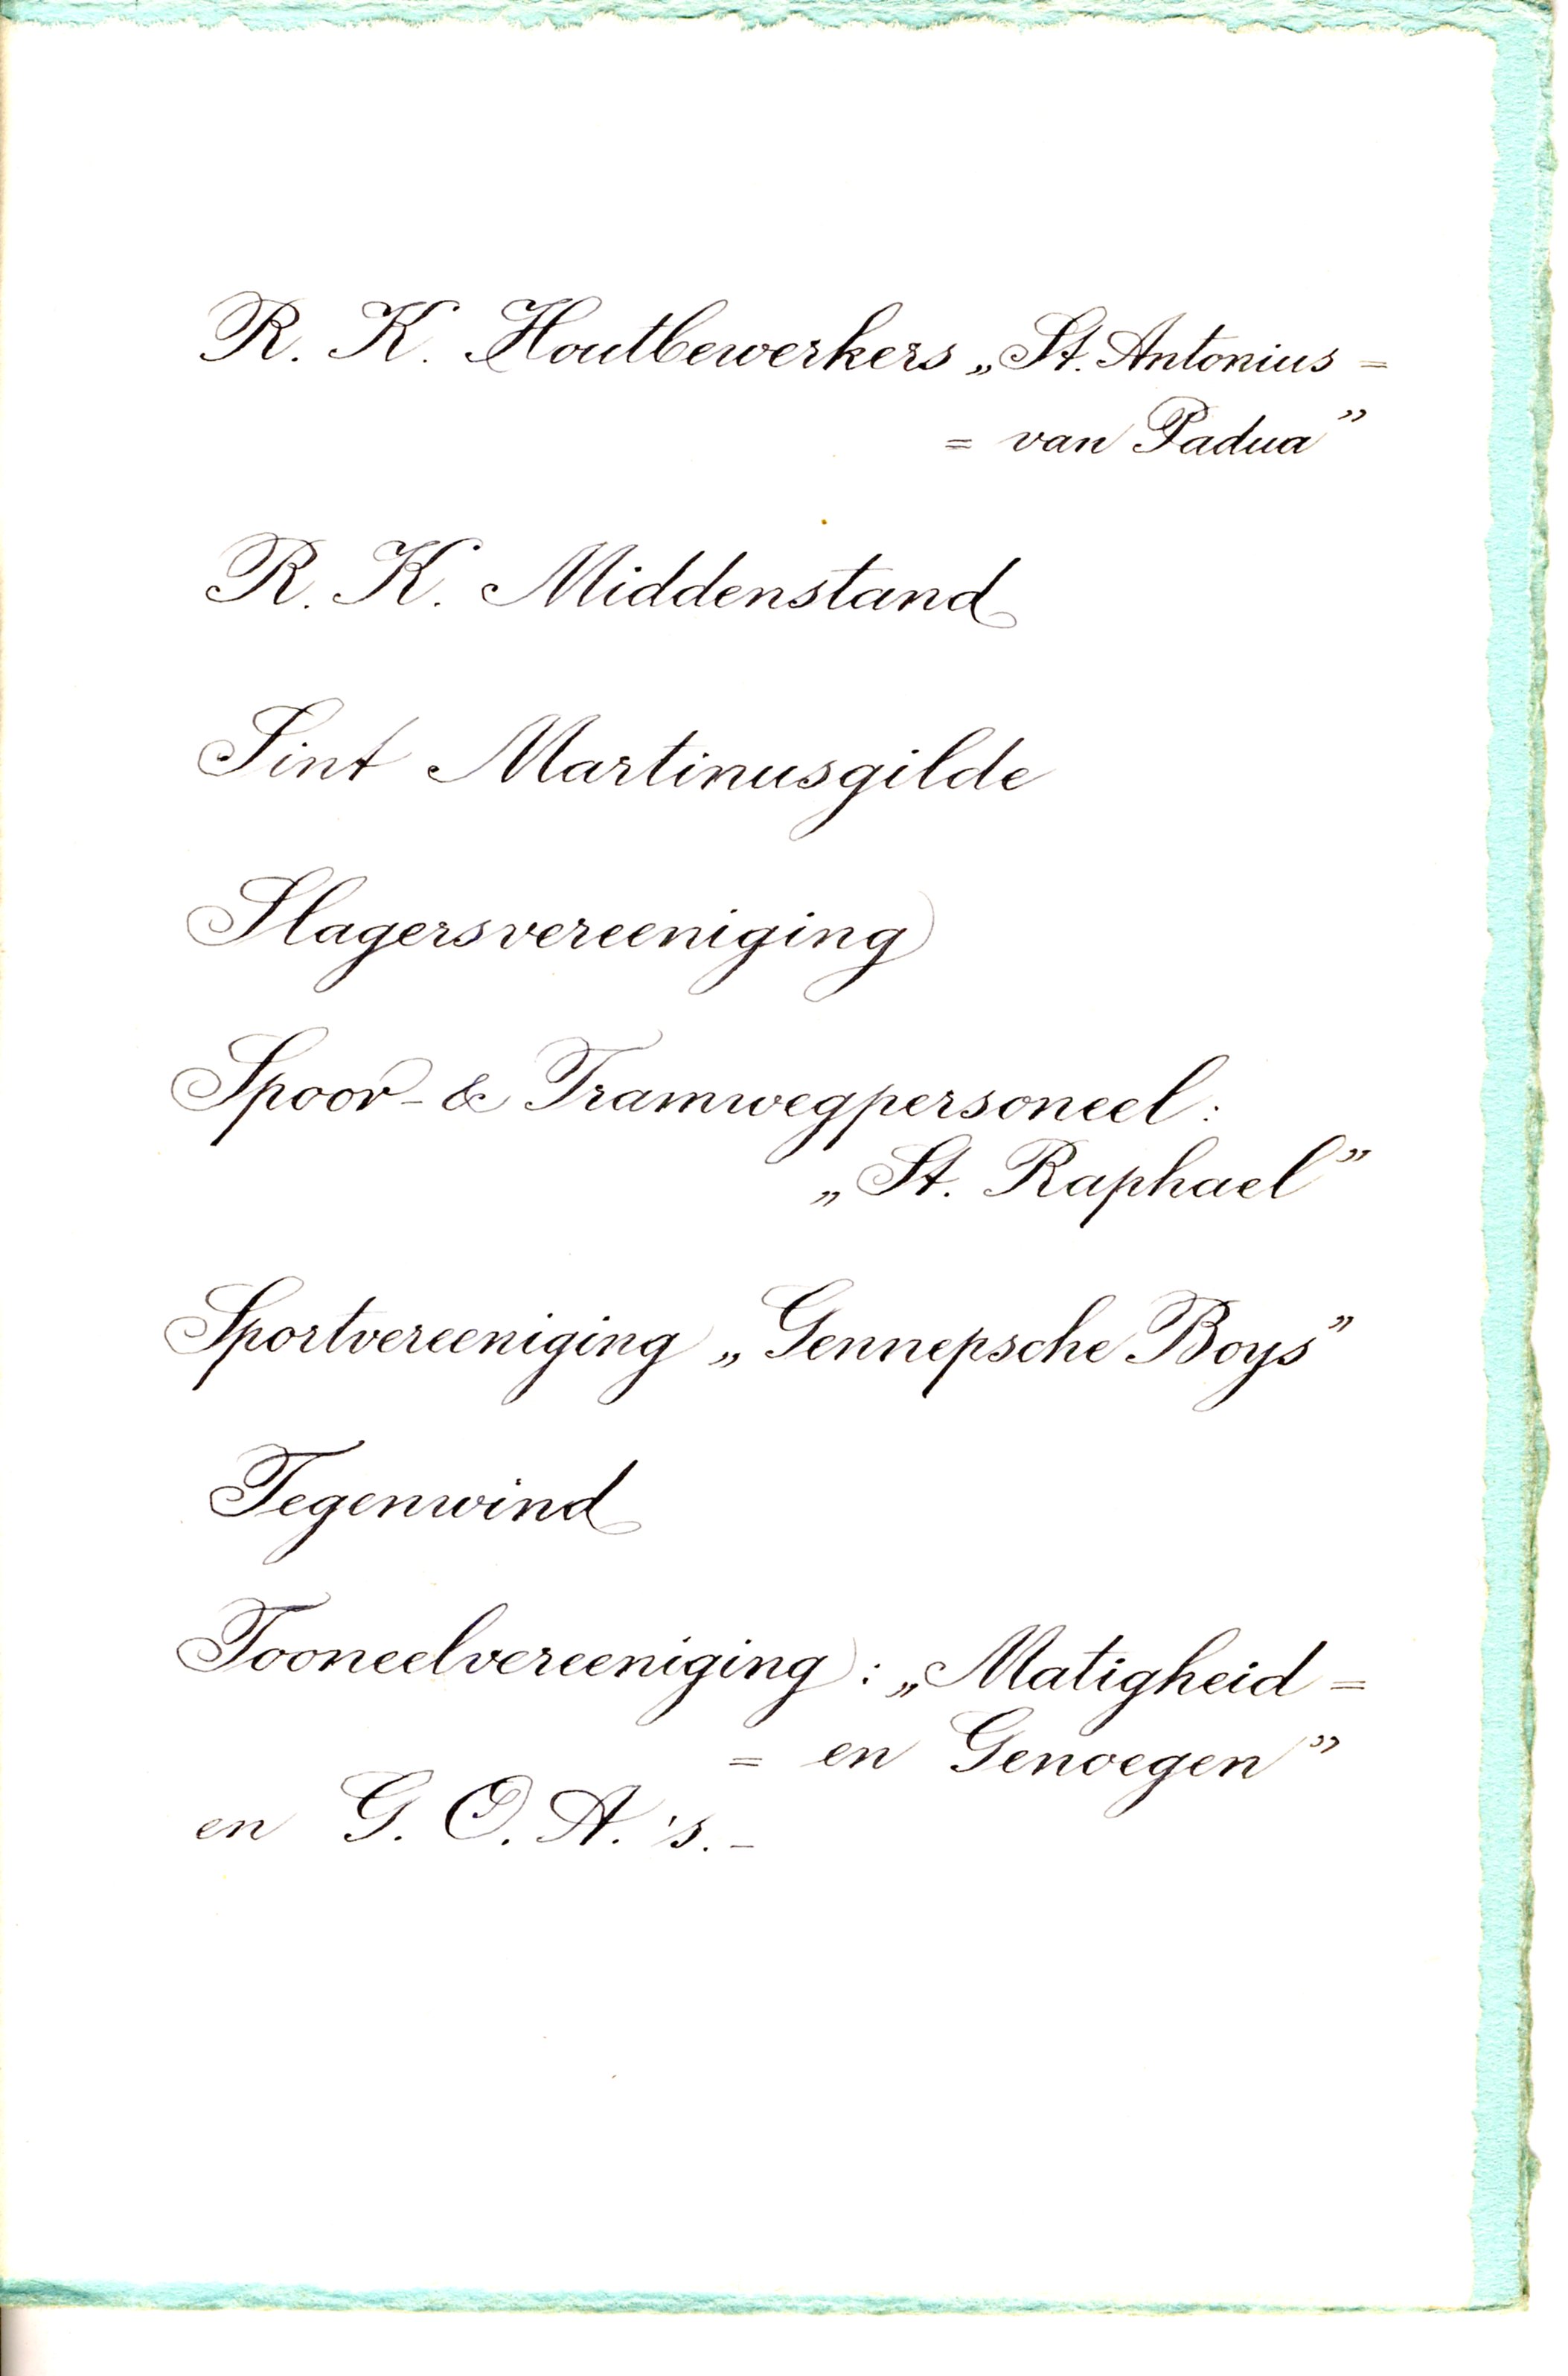 R. K. Houtbewerkers „St. Antonius =
= van Padua”
R. K. Middenstand
Sint Martinusgilde
Slagersvereeniging
Spoor- & Tramwegpersoneel:
„St. Raphael”
Sportvereeniging „Gennepsche Boys”
Tegenwind
Tooneelvereeniging: „Matigheid =
= en Genoegen”
en G. O. A.'s.-